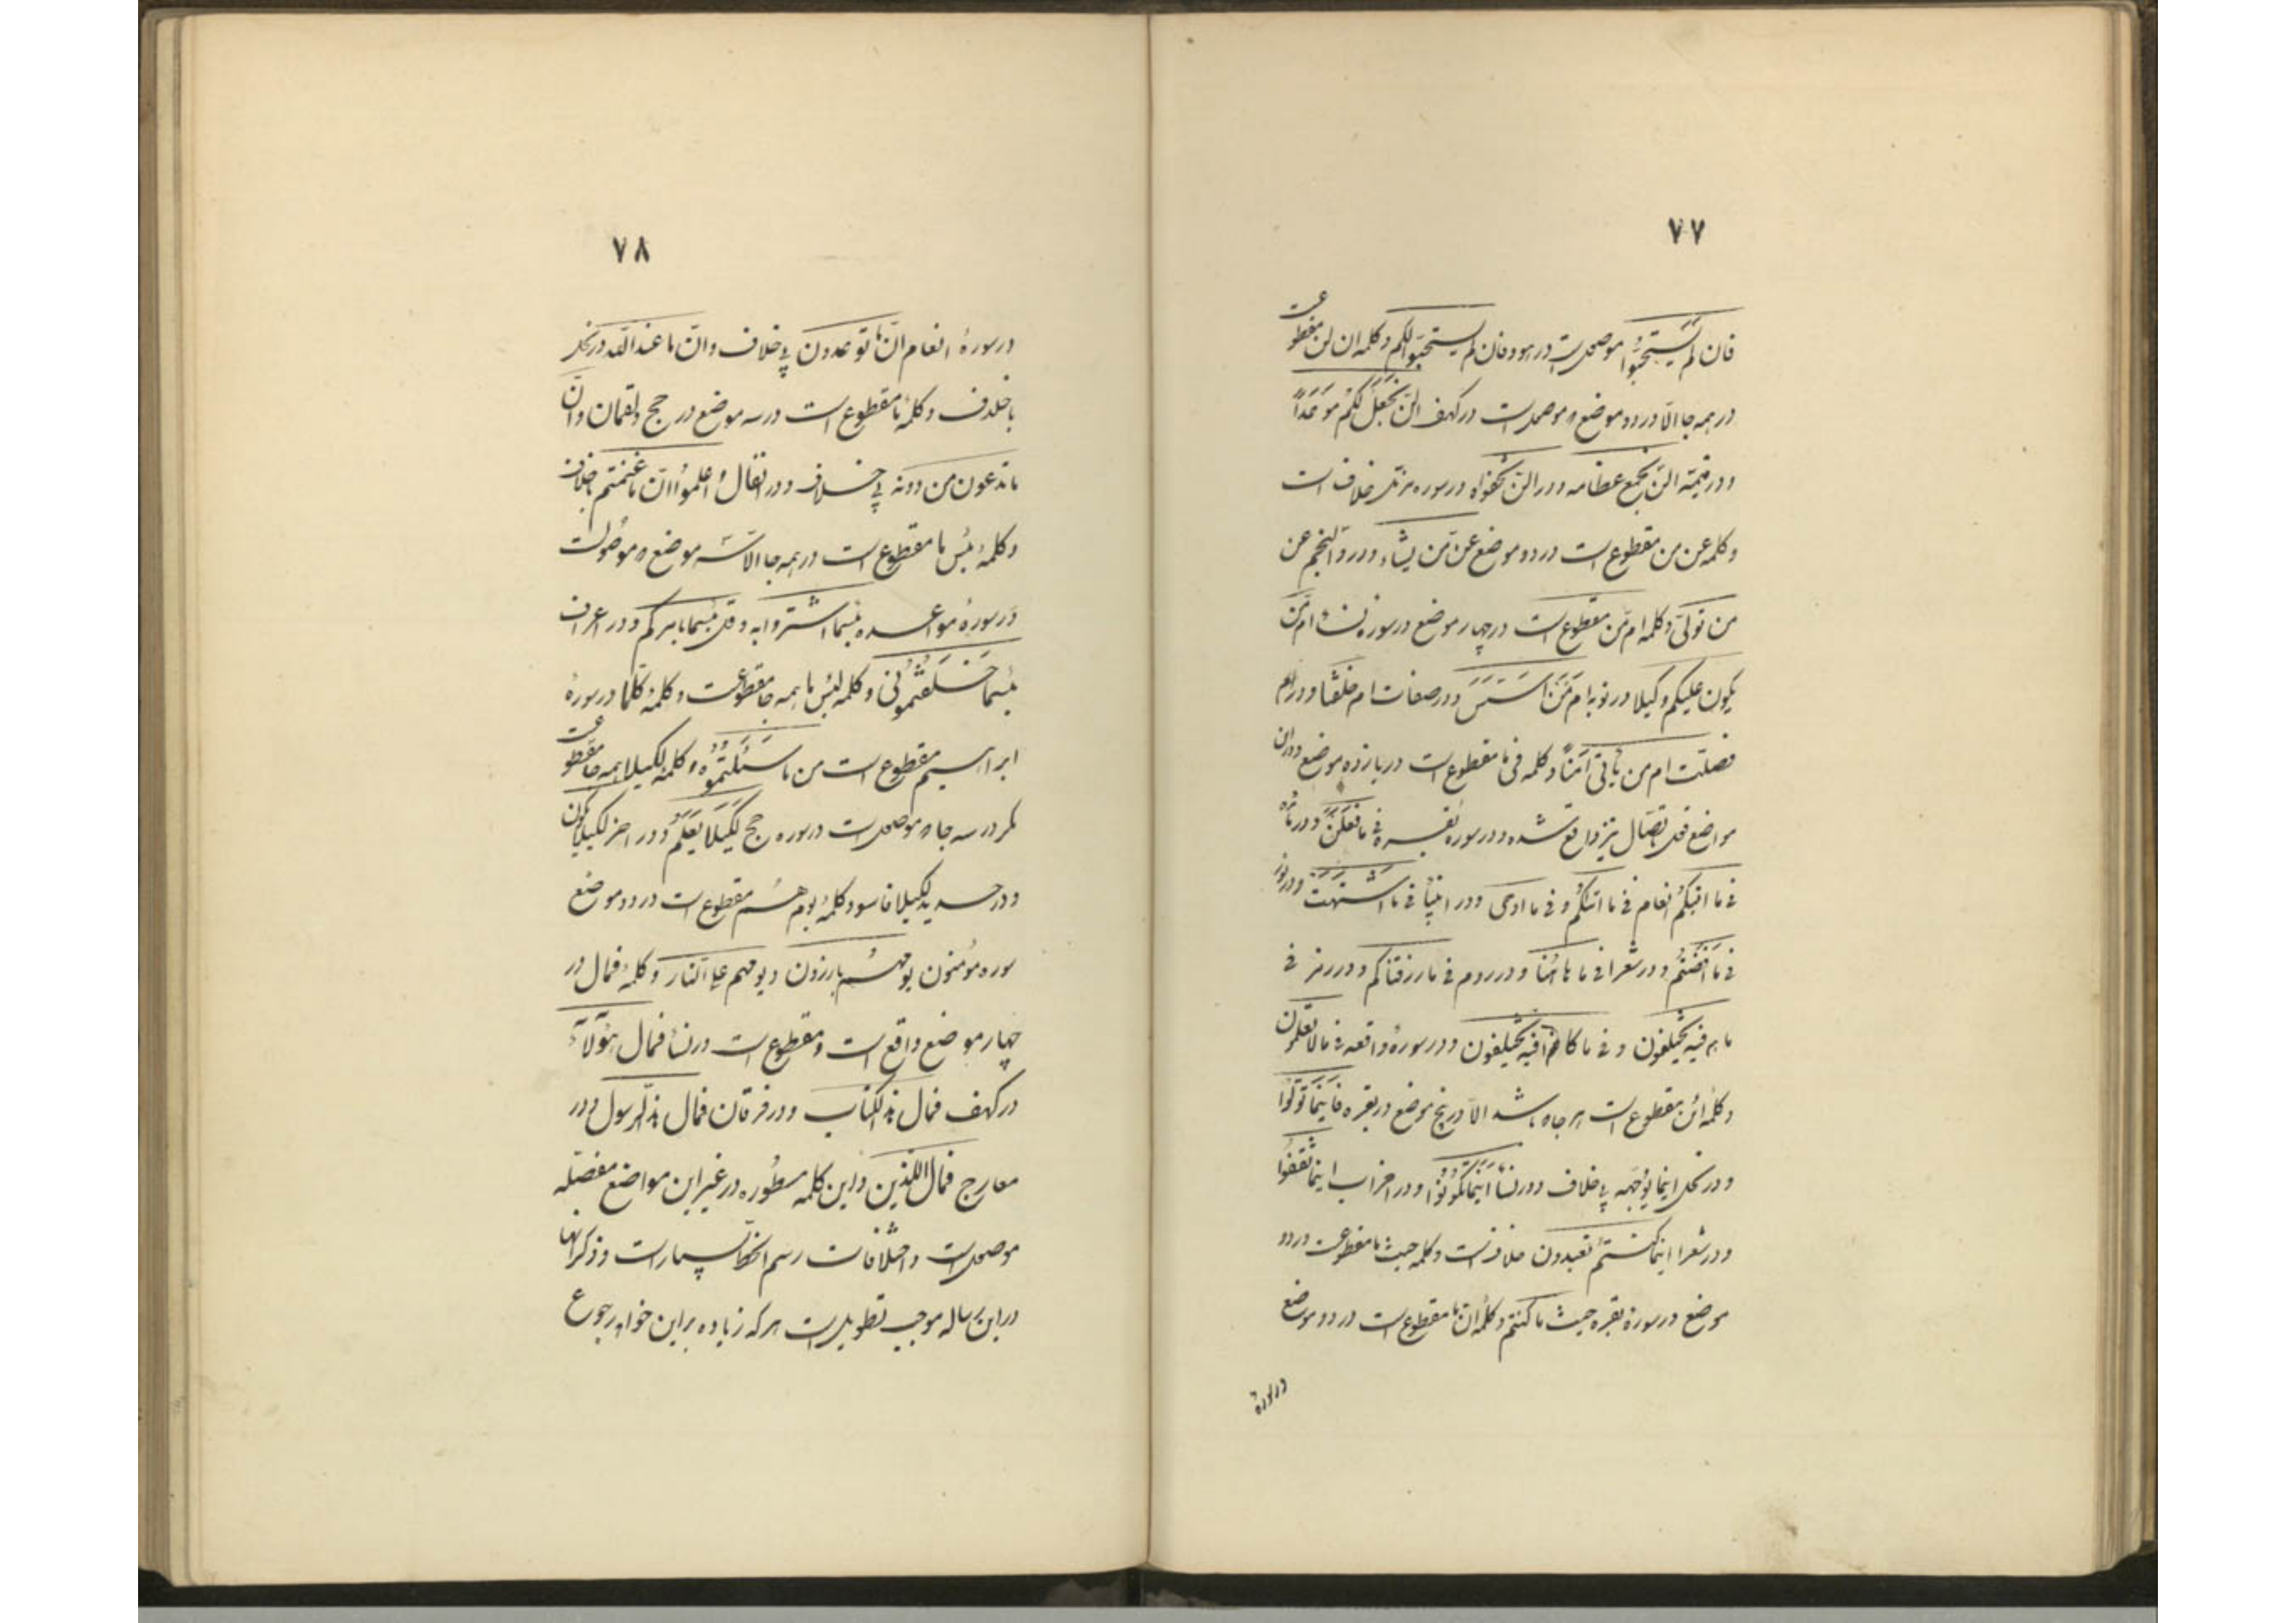 ۷۷
فان لم یستجیبوا موصولست در هود فان لم یستجیبوا لکم و کلمه ان لن مقطوعست
در همه جا الّا در دو موضع موصولست در کهف الّن نجعل لکم موعداً
و در قیمة الّن نجمع عظامه و در الّن تحصوه در سوره مزمّل خلاف است
و کلمه عن من مقطوع است در دو موضع عن من یشاء و در والنجم عن
من تولّی و کلمه ام من مقطوع است در چهار موضع در سورهٔ نساء ام من
یکون علیکم وکیلا در توبه ام من اسّس و در صفات ام من خلقنا و در حم
فصلت ام من یأتی آمناً و کلمه فی ما مقطوع است در یازده موضع و در ان
مواضع قول باتصال نیز واقع شده و در سوره بقره فی ما فعلن و در مائده
فی ما اتیکم انعام فی ما اتیکم و فی ما اوحی و در انبیا فی ما اشتهت و در نور
فی ما افضتم و در شعرا فی ما هاهنا و در روم فی ما رزقناکم و در زمر فی
ما هم فیه یختلفون و فی ما کانوا فیه یختلفون و در سورهٔ واقعه فی ما لا تعلمون
و کلمهٔ این مقطوع است هر جا که باشد الّا در پنج موضع در بقره فاینما تولّوا
و در نحل اینما یوجهه بی خلاف و در نسا اینما تکونوا و در احزاب اینما ثقفوا
و در شعرا اینما کنتم تعبدون خلافست و کلمه حیث ما مقطوعست در دو
موضع در سورهٔ بقره حیث ما کنتم و کلمهٔ انّ ما مقطوع است در دو موضع
در سورهٔ
۷۸
در سورهٔ انعام انّ ما توعدون بی خلاف و انّ ما عند الله در نحل
با خلاف و کلمهٔ ما مقطوع است در سه موضع در حج و لقمان و انّ
ما تدعون من دونه بی خلاف و در انفال و اعلموا انّ ما غنمتم بخلاف
و کلمهٔ بئس ما مقطوع است در همه جا الّا سه موضع که موصولست
در سورهٔ بئسما اشتروا به و قل بئسما یامرکم و در اعراف
بئسما خلفتمونی و کلمه لبئس ما همه جا مقطوعست و کلمهٔ کلّما در سورهٔ
ابراهیم مقطوع است من ما سئلتموه و کلمهٔ لکیلا همه جا مقطوعست
مگر در سه جا که موصولست در سوره حج لکیلا یعلم و در احزاب لکیلا یکون
و در حدید لکیلا تاسو و کلمهٔ یوم هم مقطوع است در دو موضع
سوره مؤمنون یوم هم بارزون و یوم هم علی النار و کلمهٔ فمال در
چهار موضع واقع است و مقطوع است در نسا فمال هؤلاء
در کهف فمال هذا الکتاب و در فرقان فمال هذا الرسول و در
معارج فمال الذین و این کلمه مسطوره در غیر این مواضع مفصله
موصولست و اختلافات رسم الخط بسیار است و ذکر آنها
در این رساله موجب تطویل است هر که زیاده بر این خواهد رجوع